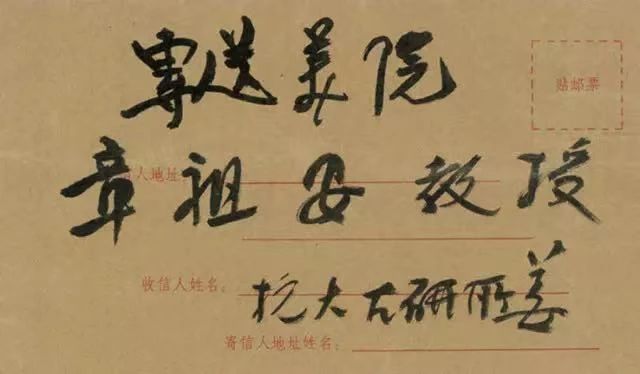 專送美院
贴邮票
信人地址:
章祖安教授
收信人姓名:
杭大古研所姜
寄信人地址姓名: